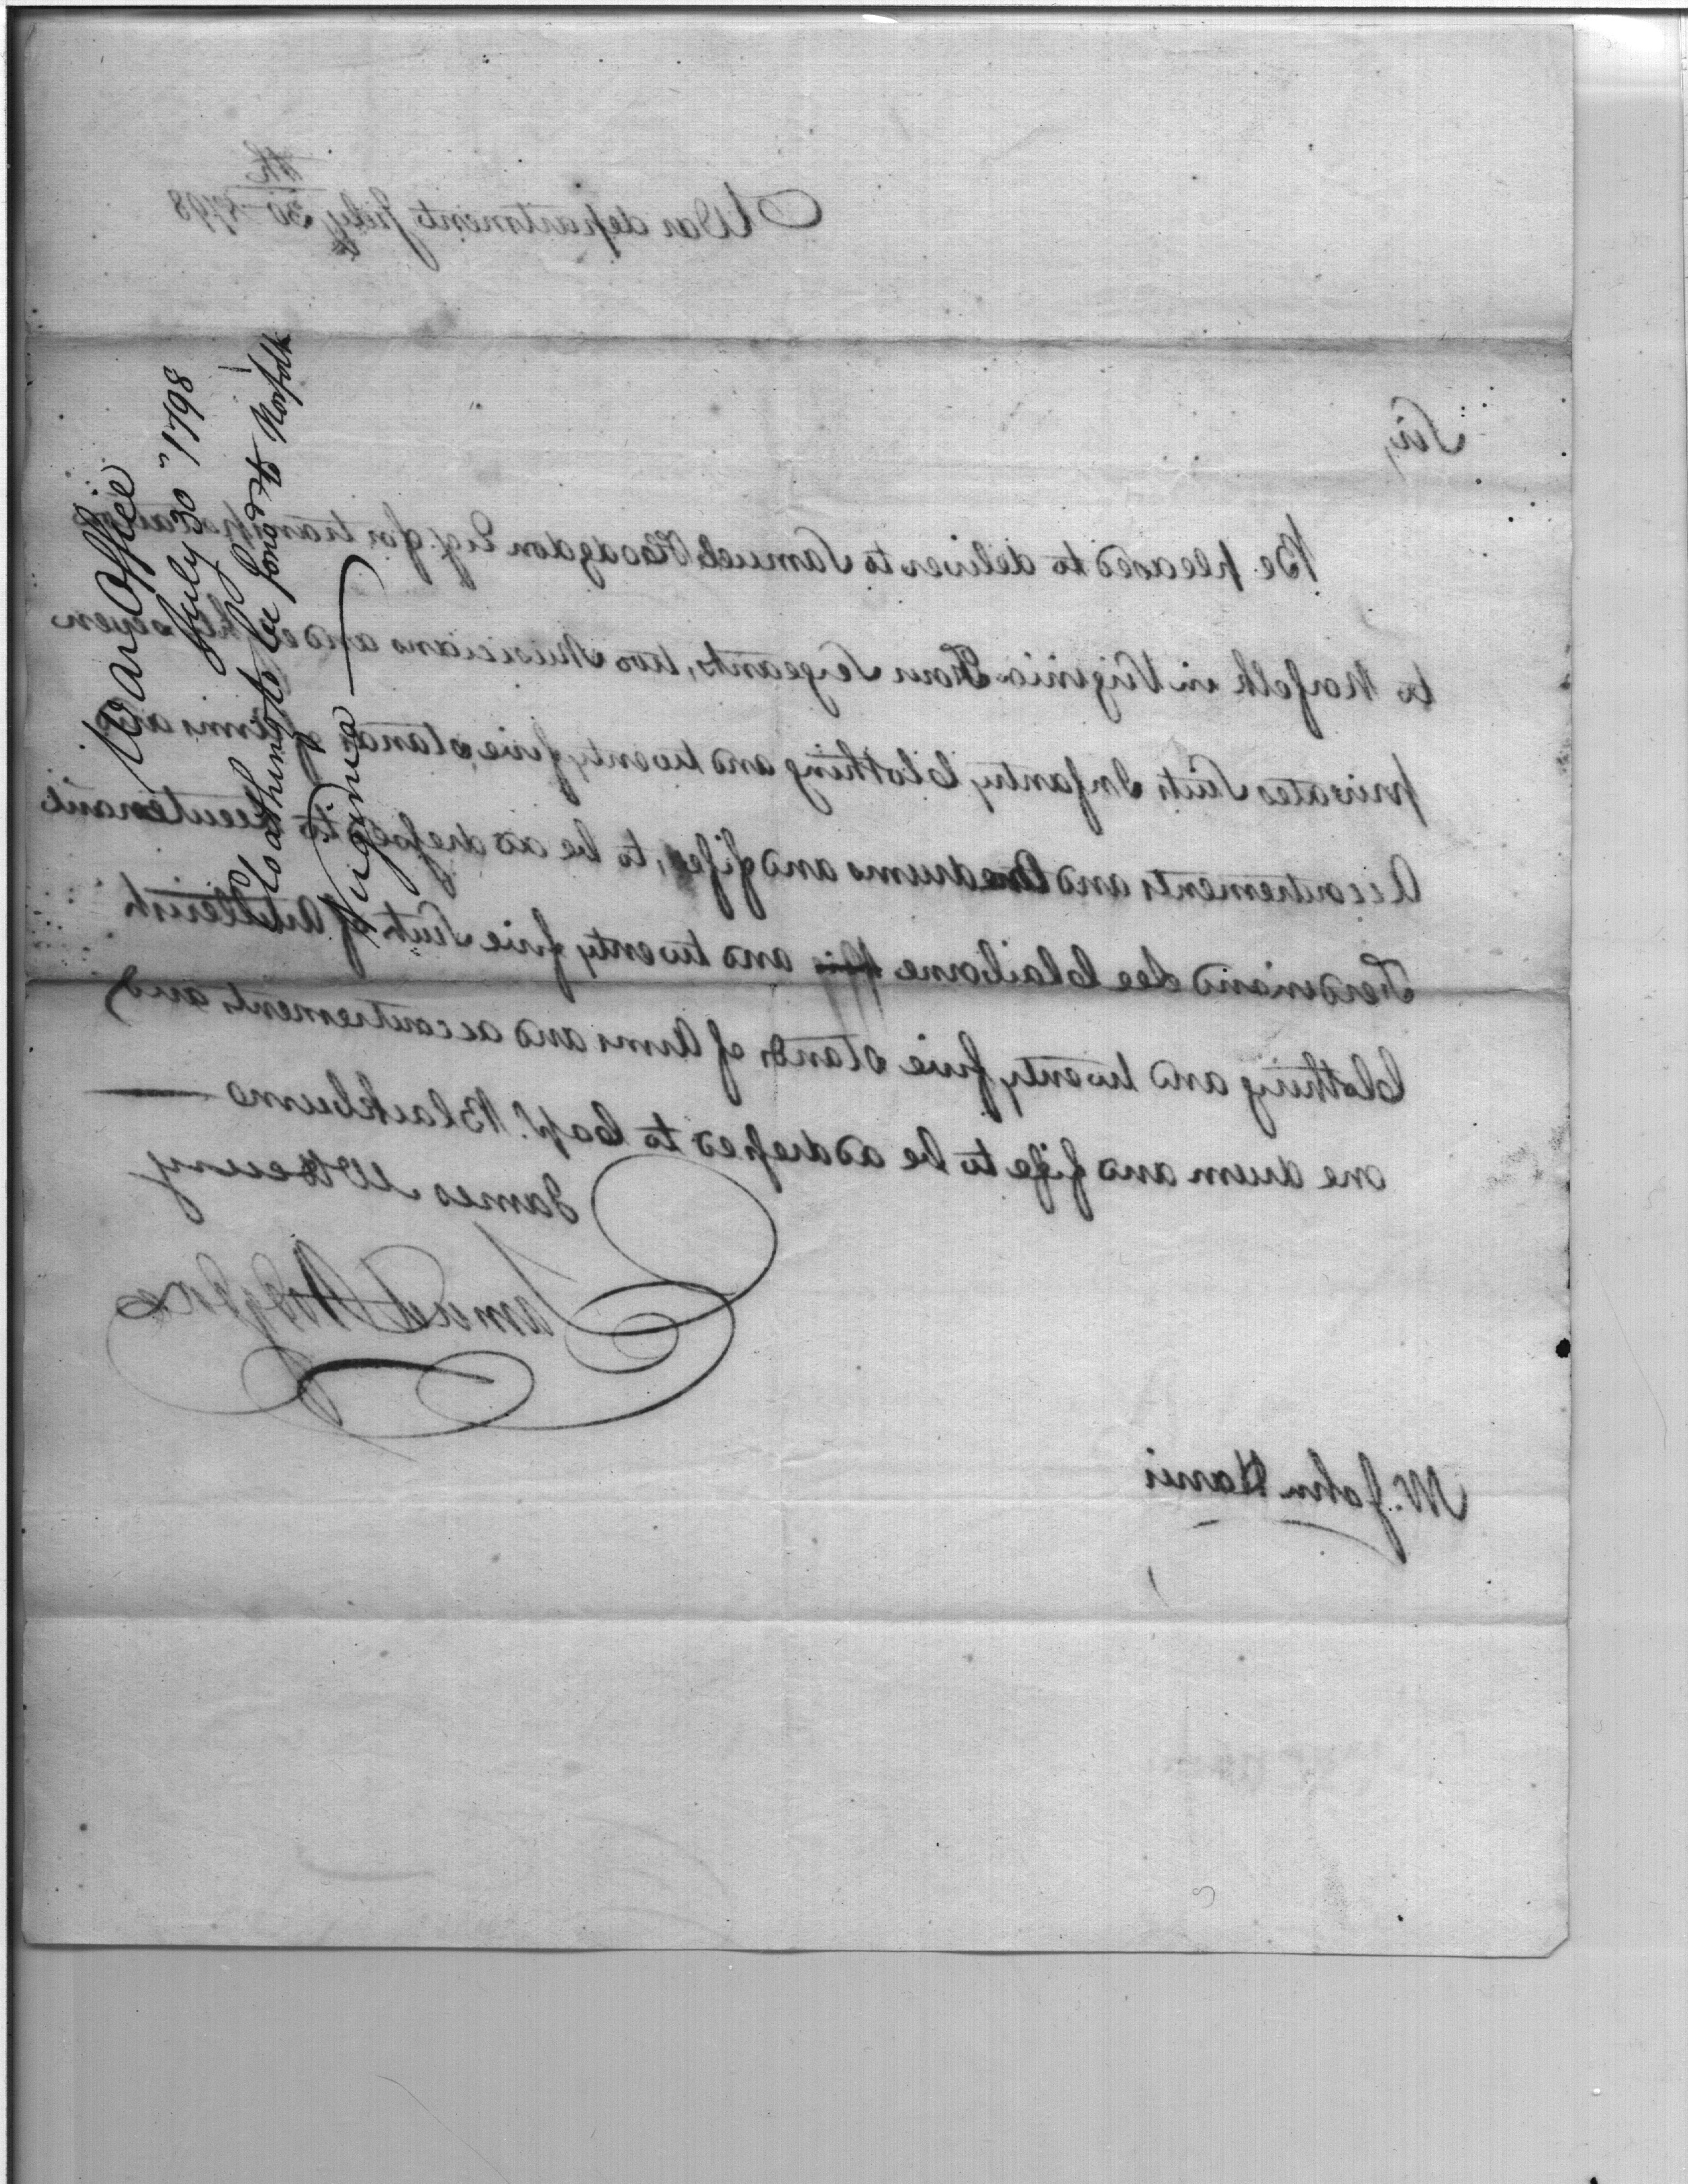 War Office
July 30" 1798
Cloathing to be forw.d to Norfolk
Virginia
War department July 30th 1798
Sir,
Be pleased to deliver to Samuel Hodgdon Esq. for transportation
to Norfolk in Virginia Four Sergeants, two Musicians and eighteen
privates Suits Infantry Clothing and twenty five stands of Arms and
Accoutrements and drums and fifes, to be addressed to Lieutenant
Ferdinand Lee Claiborne and twenty five Suits of Artillerists
Clothing and twenty five stands of Arms and accoutrements and
one drum and fife to be addressed to Capt. Blackburne
James McHenry
Samuel Hodgdon
Mr. John Harris